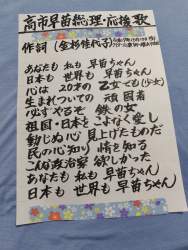 高市早苗総理・応援歌
作詞(金杉佳代子)
あなたも 私も 早苗ちゃん
日本も 世界も 早苗ちゃん
心は 20才の 乙女でも(少女)
生まれついての 頑固者
必ずやるぞ 鉄の女
祖国・日本を こよなく愛し
動じぬ心 見上げたものだ
民の心知り 情を知る
こんな政治家 欲しかった
あなたも 私も 早苗ちゃん
日本も 世界も 早苗ちゃん